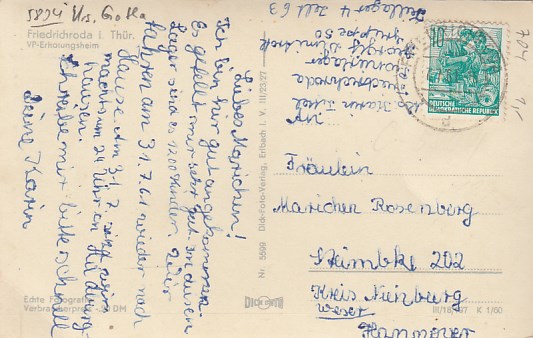 5804 Krs. Gotha
Friedrichroda i. Thür.
VP-Erholungsheim
Liebes Marichen!
Ich bin hier gut angekommen.
Es gefällt mir sehr gut. In diesem
Lager sind es 1200 Kinder. Wir
fahren am 31.7.61 wieder nach
Hause. Am 31.7. sind wir
nachts um 24 Uhr in Hildburg-
hausen.
Schreibe mir bitte schnell
Deine Karin
Echte Fotografie
Verbraucherpreis DM
Nr 5599 Dick-Foto-Verlag, Erlbach i. V. III/23/27
DICK FOTO
Karin
Friedrichroda
Gruppe 50
Zeltlager 4 Zelt 63
10
DEUTSCHE
DEMOKRATISCHE REPUBLIK
704
1,-
Fräulein
Maricher Rosenberg
Steimbke 202
Kreis Nienburg
Weser
Hannover
III/18/197 K 1/60